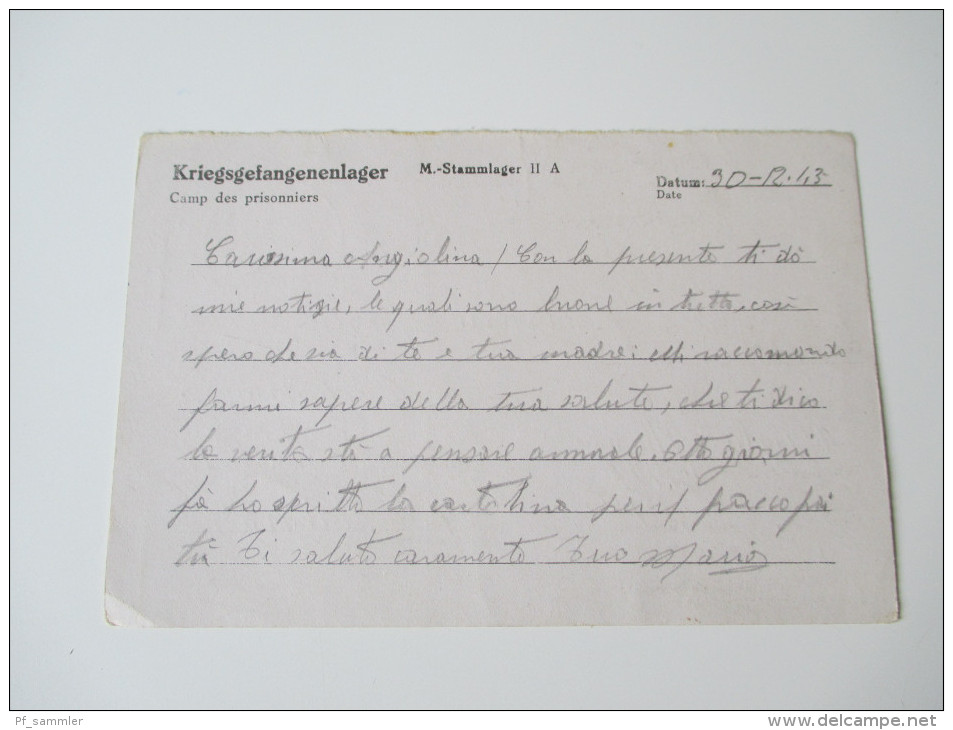 Kriegsgefangenenlager M.-Stammlager II A Datum: 30-12.43
Camp des prisonniers Date
Carissima Angiolina / Con la presente ti dò
mie notizie, le quali sono buone in tutto, così
spero che sia di te e tua madre; Mi raccomando
farmi sapere della tua salute, che ti dico
la verità stò a pensare ammale. Otto giorni
fà ho scritto la cartolina per il pacco
Ti saluto caramente Tuo Mario
Pf_sammler
www.delcampe.net